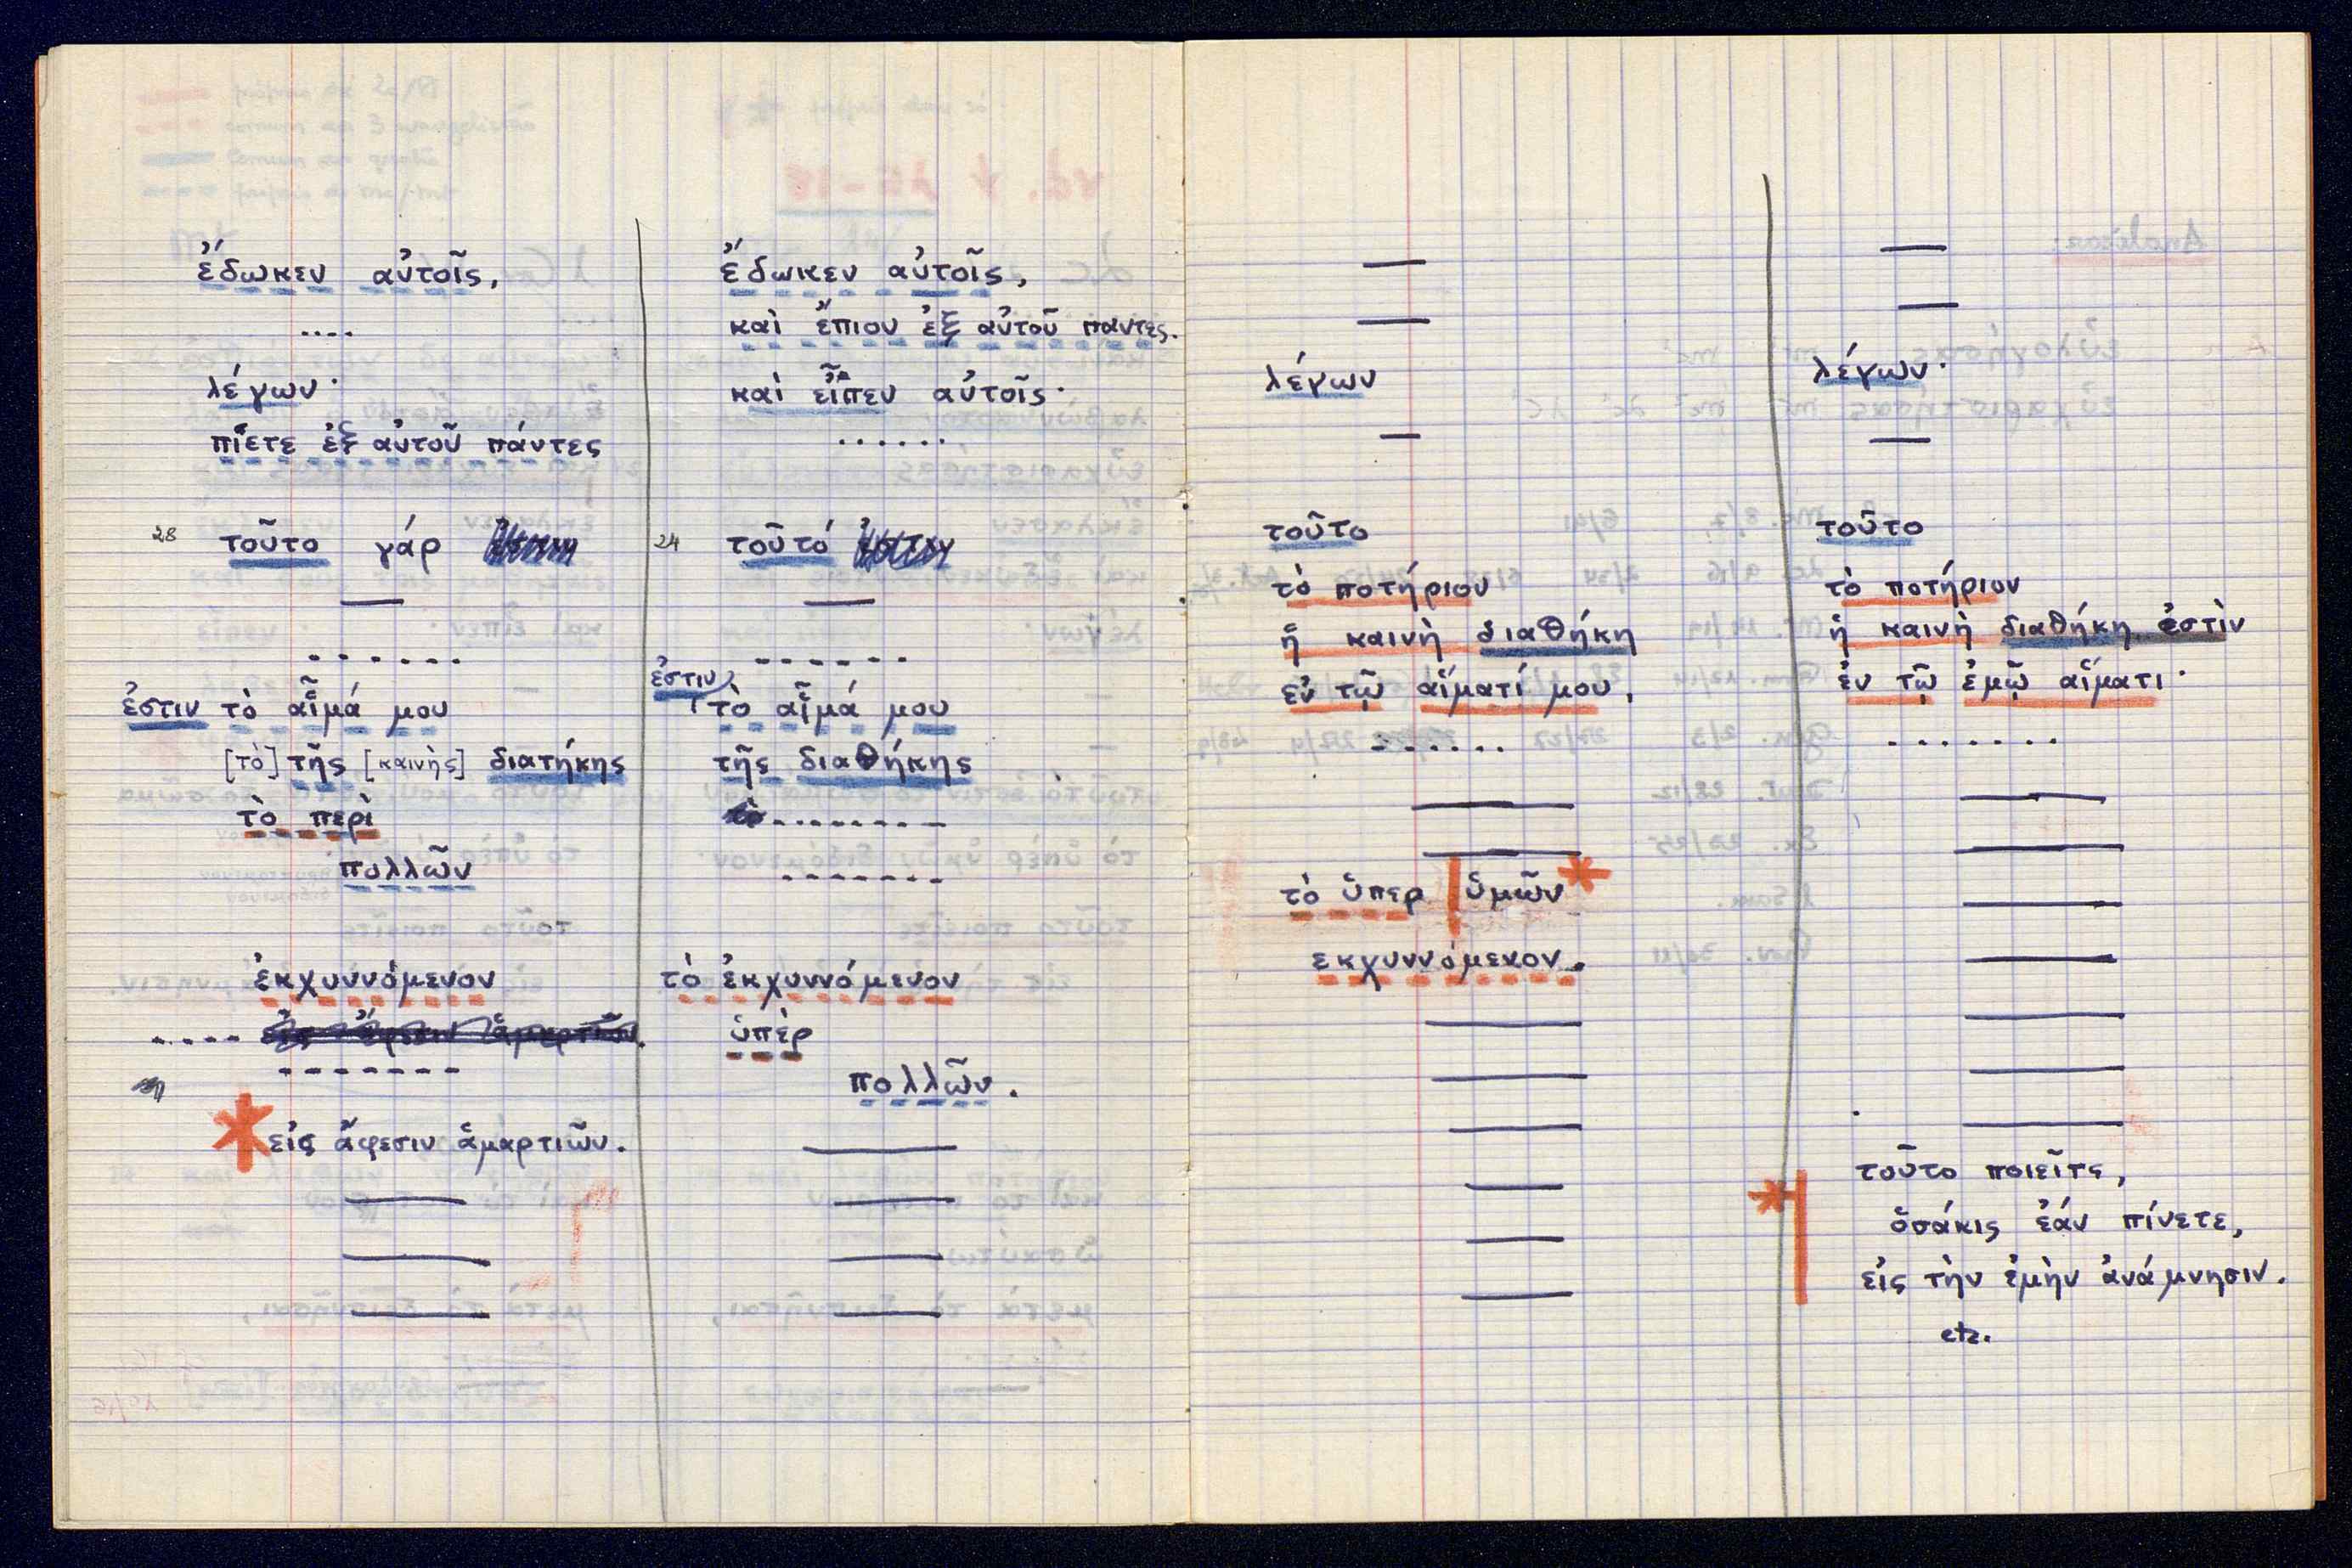 ἔδωκεν αὐτοῖς,
....
λέγων·
πίετε ἐξ αὐτοῦ πάντες
28 τοῦτο γάρ
ἐστιν τὸ αἷμά μου
[τὸ] τῆς [καινὴς] διατήκης
τὸ περὶ
πολλῶν
ἐκχυννόμενον
εἰς ἄφεσιν ἁμαρτιῶν.
ἔδωκεν αὐτοῖς,
καὶ ἔπιον ἐξ αὐτοῦ παντες.
καὶ εἶπεν αὐτοῖς·
......
24 τοῦτό
ἐστιν
τὸ αἷμά μου
τῆς διαθήκης
τὸ ἐκχυννόμενον
ὑπὲρ
πολλῶν.
λέγων
τοῦτο
τὸ ποτήριον
ἡ καινὴ διαθήκη
ἐν τῷ αἵματί μου,
......
τὸ ὑπερ ὑμῶν
εκχυννόμενον.
λέγων·
τοῦτο
τὸ ποτήριον
ἡ καινὴ διαθήκη ἐστὶν
ἐν τῷ ἐμῷ αἵματι·
.......
τοῦτο ποιεῖτε,
ὁσάκις ἐάν πίνετε,
εἰς τὴν ἐμὴν ἀνάμνησιν.
etc.